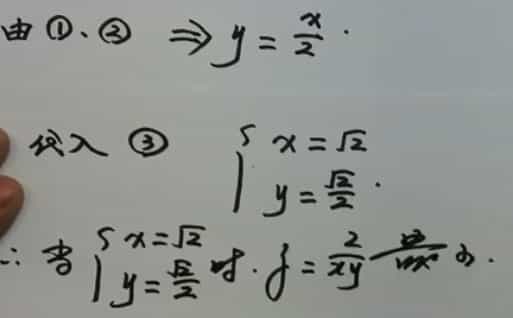 由 ①、② ⇒ y = x/2 .
代入 ③ { x = √2
y = √2/2 .
∴ 当 { x = √2
y = √2/2 时. f = 2/xy